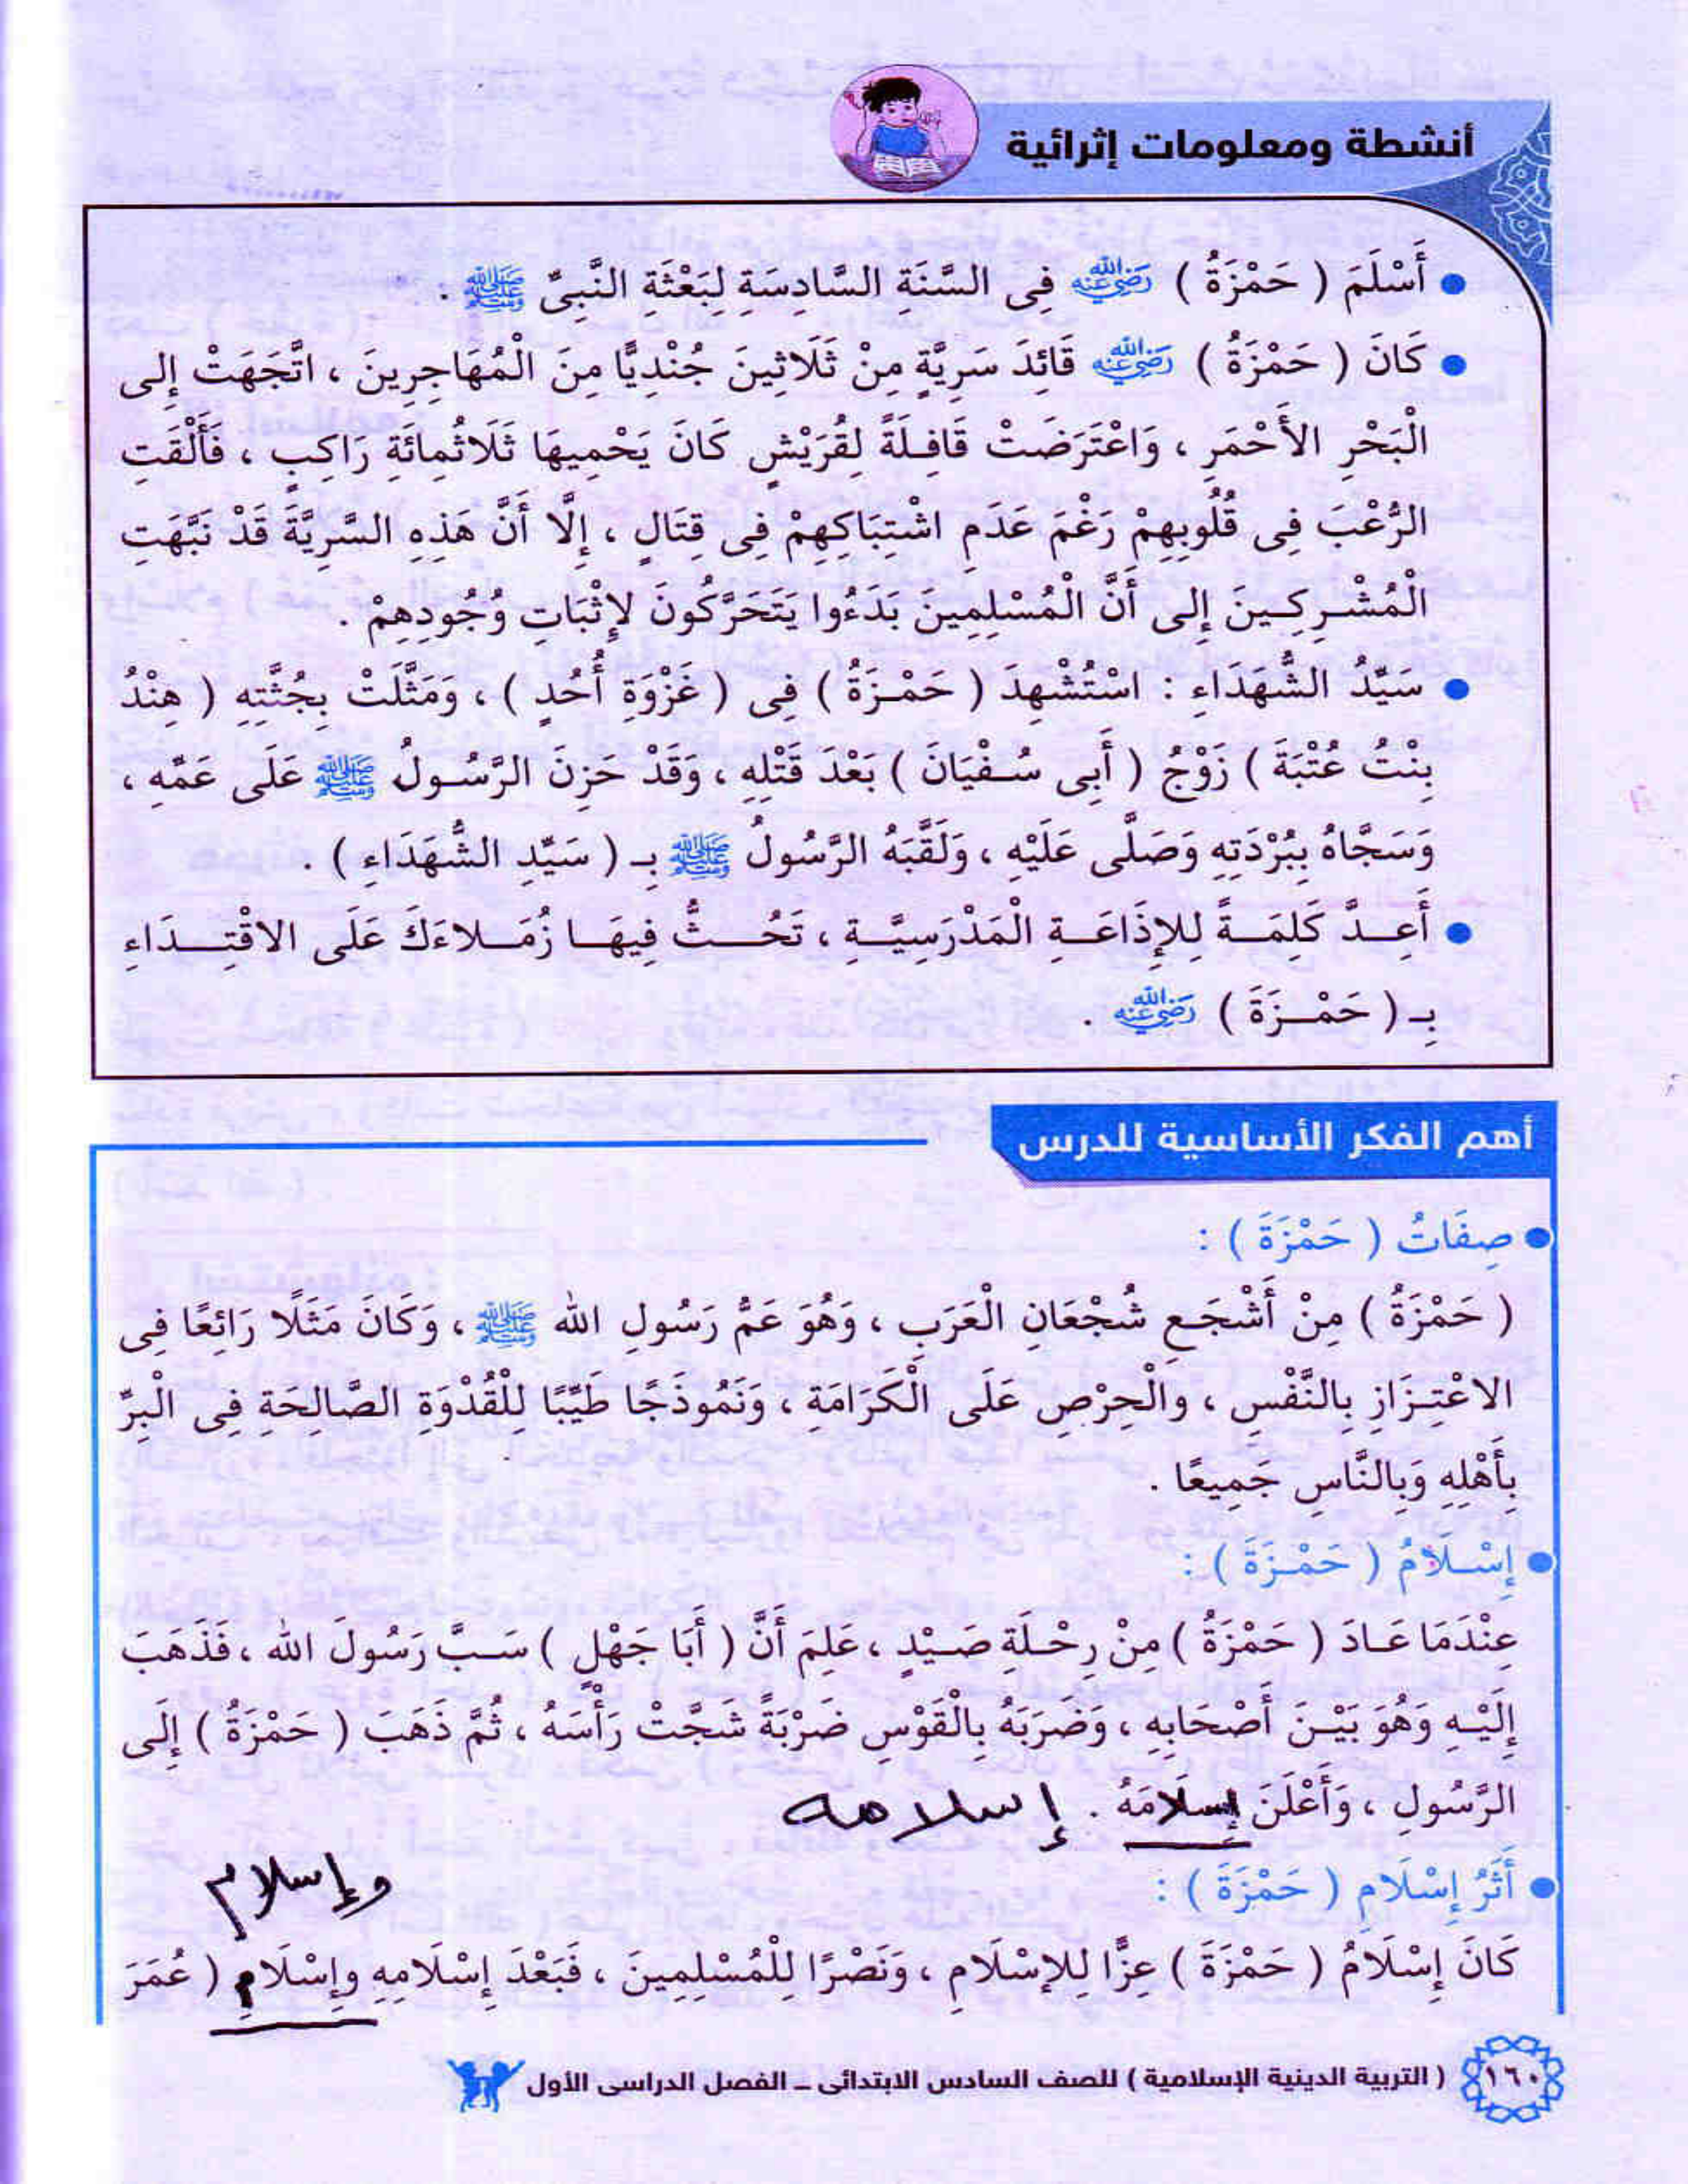 أنشطة ومعلومات إثرائية
● أَسْلَمَ ( حَمْزَةُ ) رَضِيَ اللهُ عَنْهُ فِى السَّنَةِ السَّادِسَةِ لِبَعْثَةِ النَّبِىِّ ﷺ .
● كَانَ ( حَمْزَةُ ) رَضِيَ اللهُ عَنْهُ قَائِدَ سَرِيَّةٍ مِنْ ثَلَاثِينَ جُنْدِيًّا مِنَ الْمُهَاجِرِينَ ، اتَّجَهَتْ إِلى
الْبَحْرِ الأَحْمَرِ ، وَاعْتَرَضَتْ قَافِلَةً لِقُرَيْشٍ كَانَ يَحْمِيهَا ثَلَاثُمِائَةِ رَاكِبٍ ، فَأَلْقَت
الرُّعْبَ فِى قُلُوبِهِمْ رَغْمَ عَدَمِ اشْتِبَاكِهِمْ فِى قِتَالٍ ، إِلَّا أَنَّ هَذِهِ السَّرِيَّةَ قَدْ نَبَّهَتِ
الْمُشْرِكِينَ إِلى أَنَّ الْمُسْلِمِينَ بَدَءُوا يَتَحَرَّكُونَ لِإِثْبَاتِ وُجُودِهِمْ .
● سَيِّدُ الشُّهَدَاءِ : اسْتُشْهِدَ ( حَمْزَةُ ) فِى ( غَزْوَةِ أُحُدٍ ) ، وَمَثَّلَتْ بِجُثَّتِهِ ( هِنْدُ
بِنْتُ عُتْبَةَ ) زَوْجُ ( أَبِى سُفْيَانَ ) بَعْدَ قَتْلِهِ ، وَقَدْ حَزِنَ الرَّسُولُ ﷺ عَلَى عَمِّهِ ،
وَسَجَّاهُ بِبُرْدَتِهِ وَصَلَّى عَلَيْهِ ، وَلَقَّبَهُ الرَّسُولُ ﷺ بِـ ( سَيِّدِ الشُّهَدَاءِ ) .
● أَعِدَّ كَلِمَةً لِلإِذَاعَةِ الْمَدْرَسِيَّةِ ، تَحُثُّ فِيهَا زُمَلاءَكَ عَلَى الاقْتِدَاءِ
بِـ ( حَمْزَةَ ) رَضِيَ اللهُ عَنْهُ .
أهم الفكر الأساسية للدرس
● صِفَاتُ ( حَمْزَةَ ) :
( حَمْزَةُ ) مِنْ أَشْجَعِ شُجْعَانِ الْعَرَبِ ، وَهُوَ عَمُّ رَسُولِ الله ﷺ ، وَكَانَ مَثَلًا رَائِعًا فِى
الاعْتِزَازِ بِالنَّفْسِ ، والْحِرْصِ عَلَى الْكَرَامَةِ ، وَنَمُوذَجًا طَيِّبًا لِلْقُدْوَةِ الصَّالِحَةِ فِى الْبِرِّ
بِأَهْلِهِ وَبِالنَّاسِ جَمِيعًا .
● إِسْلَامُ ( حَمْزَةَ ) :
عِنْدَمَا عَادَ ( حَمْزَةُ ) مِنْ رِحْلَةِ صَيْدٍ ، عَلِمَ أَنَّ ( أَبَا جَهْلٍ ) سَبَّ رَسُولَ الله ، فَذَهَبَ
إِلَيْهِ وَهُوَ بَيْنَ أَصْحَابِهِ ، وَضَرَبَهُ بِالْقَوْسِ ضَرْبَةً شَجَّتْ رَأْسَهُ ، ثُمَّ ذَهَبَ ( حَمْزَةُ ) إِلَى
الرَّسُولِ ، وَأَعْلَنَ إِسلَامَهُ . إسلامه
● أَثَرُ إِسْلَامِ ( حَمْزَةَ ) : وإسلام
كَانَ إِسْلَامُ ( حَمْزَةَ ) عِزًّا لِلإِسْلَامِ ، وَنَصْرًا لِلْمُسْلِمِينَ ، فَبَعْدَ إِسْلَامِهِ وإِسْلَامِ ( عُمَرَ
١٦٠ ( التربية الدينية الإسلامية ) للصف السادس الابتدائى ــ الفصل الدراسى الأول